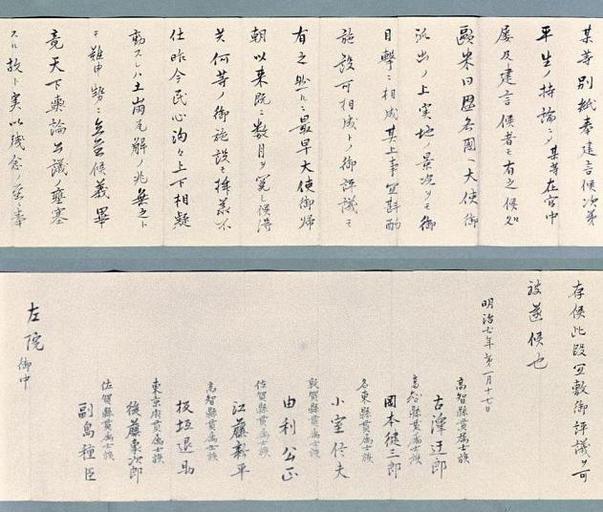 某等別紙奉建言候次第
平生ノ持論ニシテ某等在官中
屡及建言候者モ有之候処
歐米同盟各國ヘ大使御
派出ノ上実地ノ景況ヲモ御
目撃ニ相成其上事宜斟酌
施設可相成トノ御評議モ
有之然ルニ最早大使御帰
朝以来既ニ数月ヲ閲シ候得
共何等ノ御施設モ拝承不
仕昨今民心洶々上下相疑
動スレハ土崩瓦解ノ兆無之ト
モ難申勢ニ立至候義畢
竟天下輿論公議ノ壅塞
スル故ト実以残念ノ至ニ奉
存候此段宜敷御評議ヲ可
被遂候也
明治七年第一月十七日
高智縣貫属士族
古澤迂郎
高智縣貫属士族
岡本健三郎
名東縣貫属士族
小室信夫
敦賀縣貫属士族
由利公正
佐賀縣貫属士族
江藤新平
高智縣貫属士族
板垣退助
東京府貫属士族
後藤象次郎
佐賀縣貫属士族
副島種臣
左院 御中